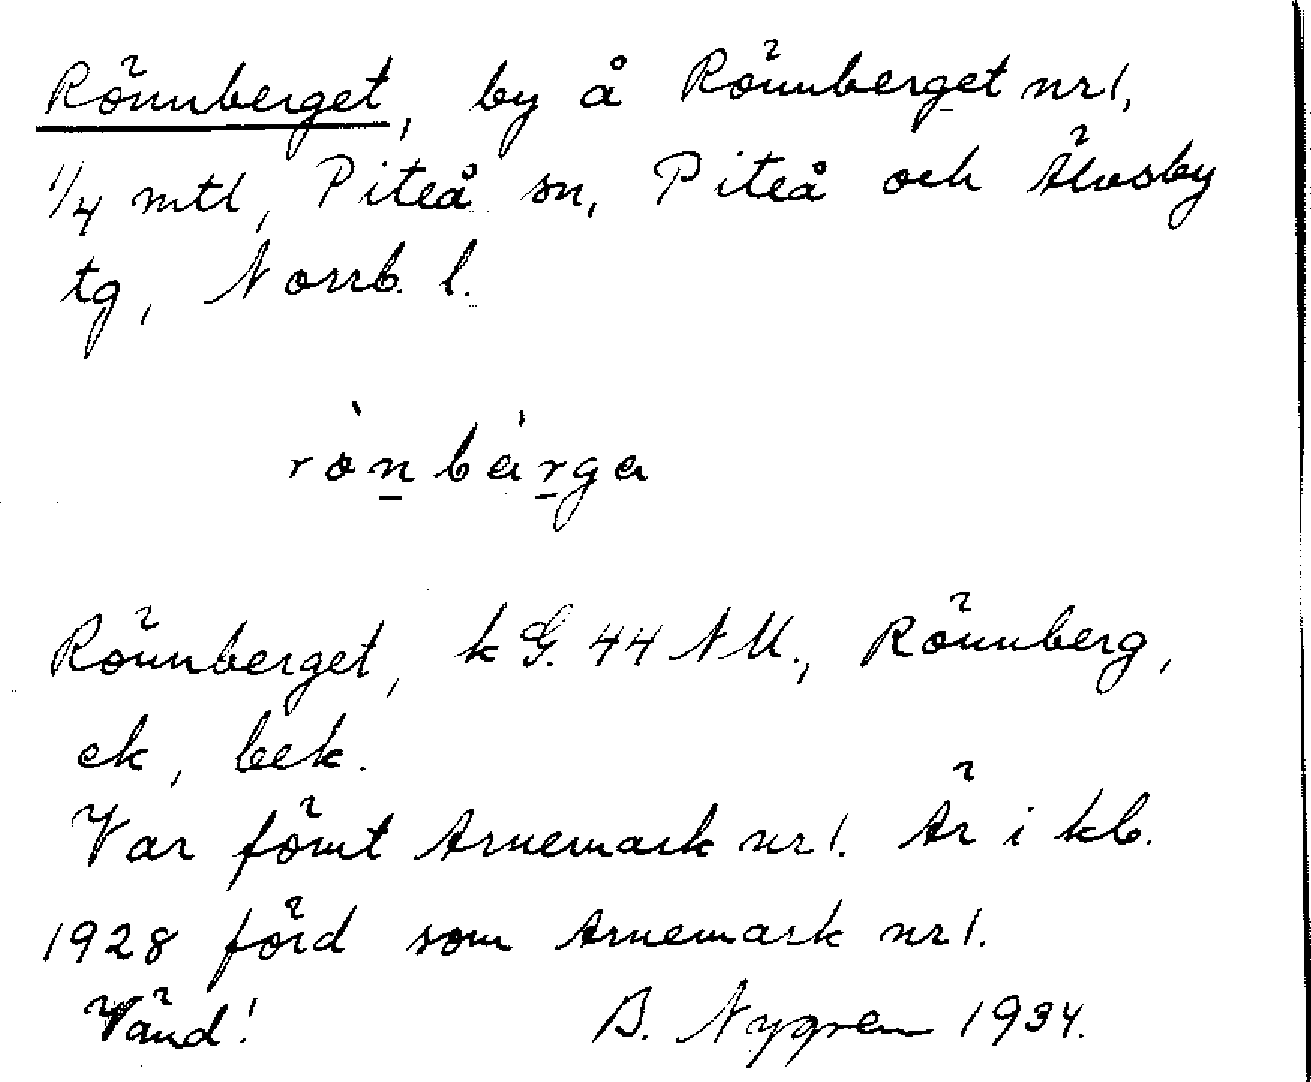 Rönnberget, by å Rönnberget nr 1,
1/4 mtl, Piteå sn, Piteå och Älvsby
tg, Norrb. l.
rònbárga
Rönnberget, k G. 44 NU., Rönnberg,
ek, bek.
Var förut Arnemark nr 1. Är i kb.
1928 förd som Arnemark nr 1.
Vänd! B. Nygren 1934.